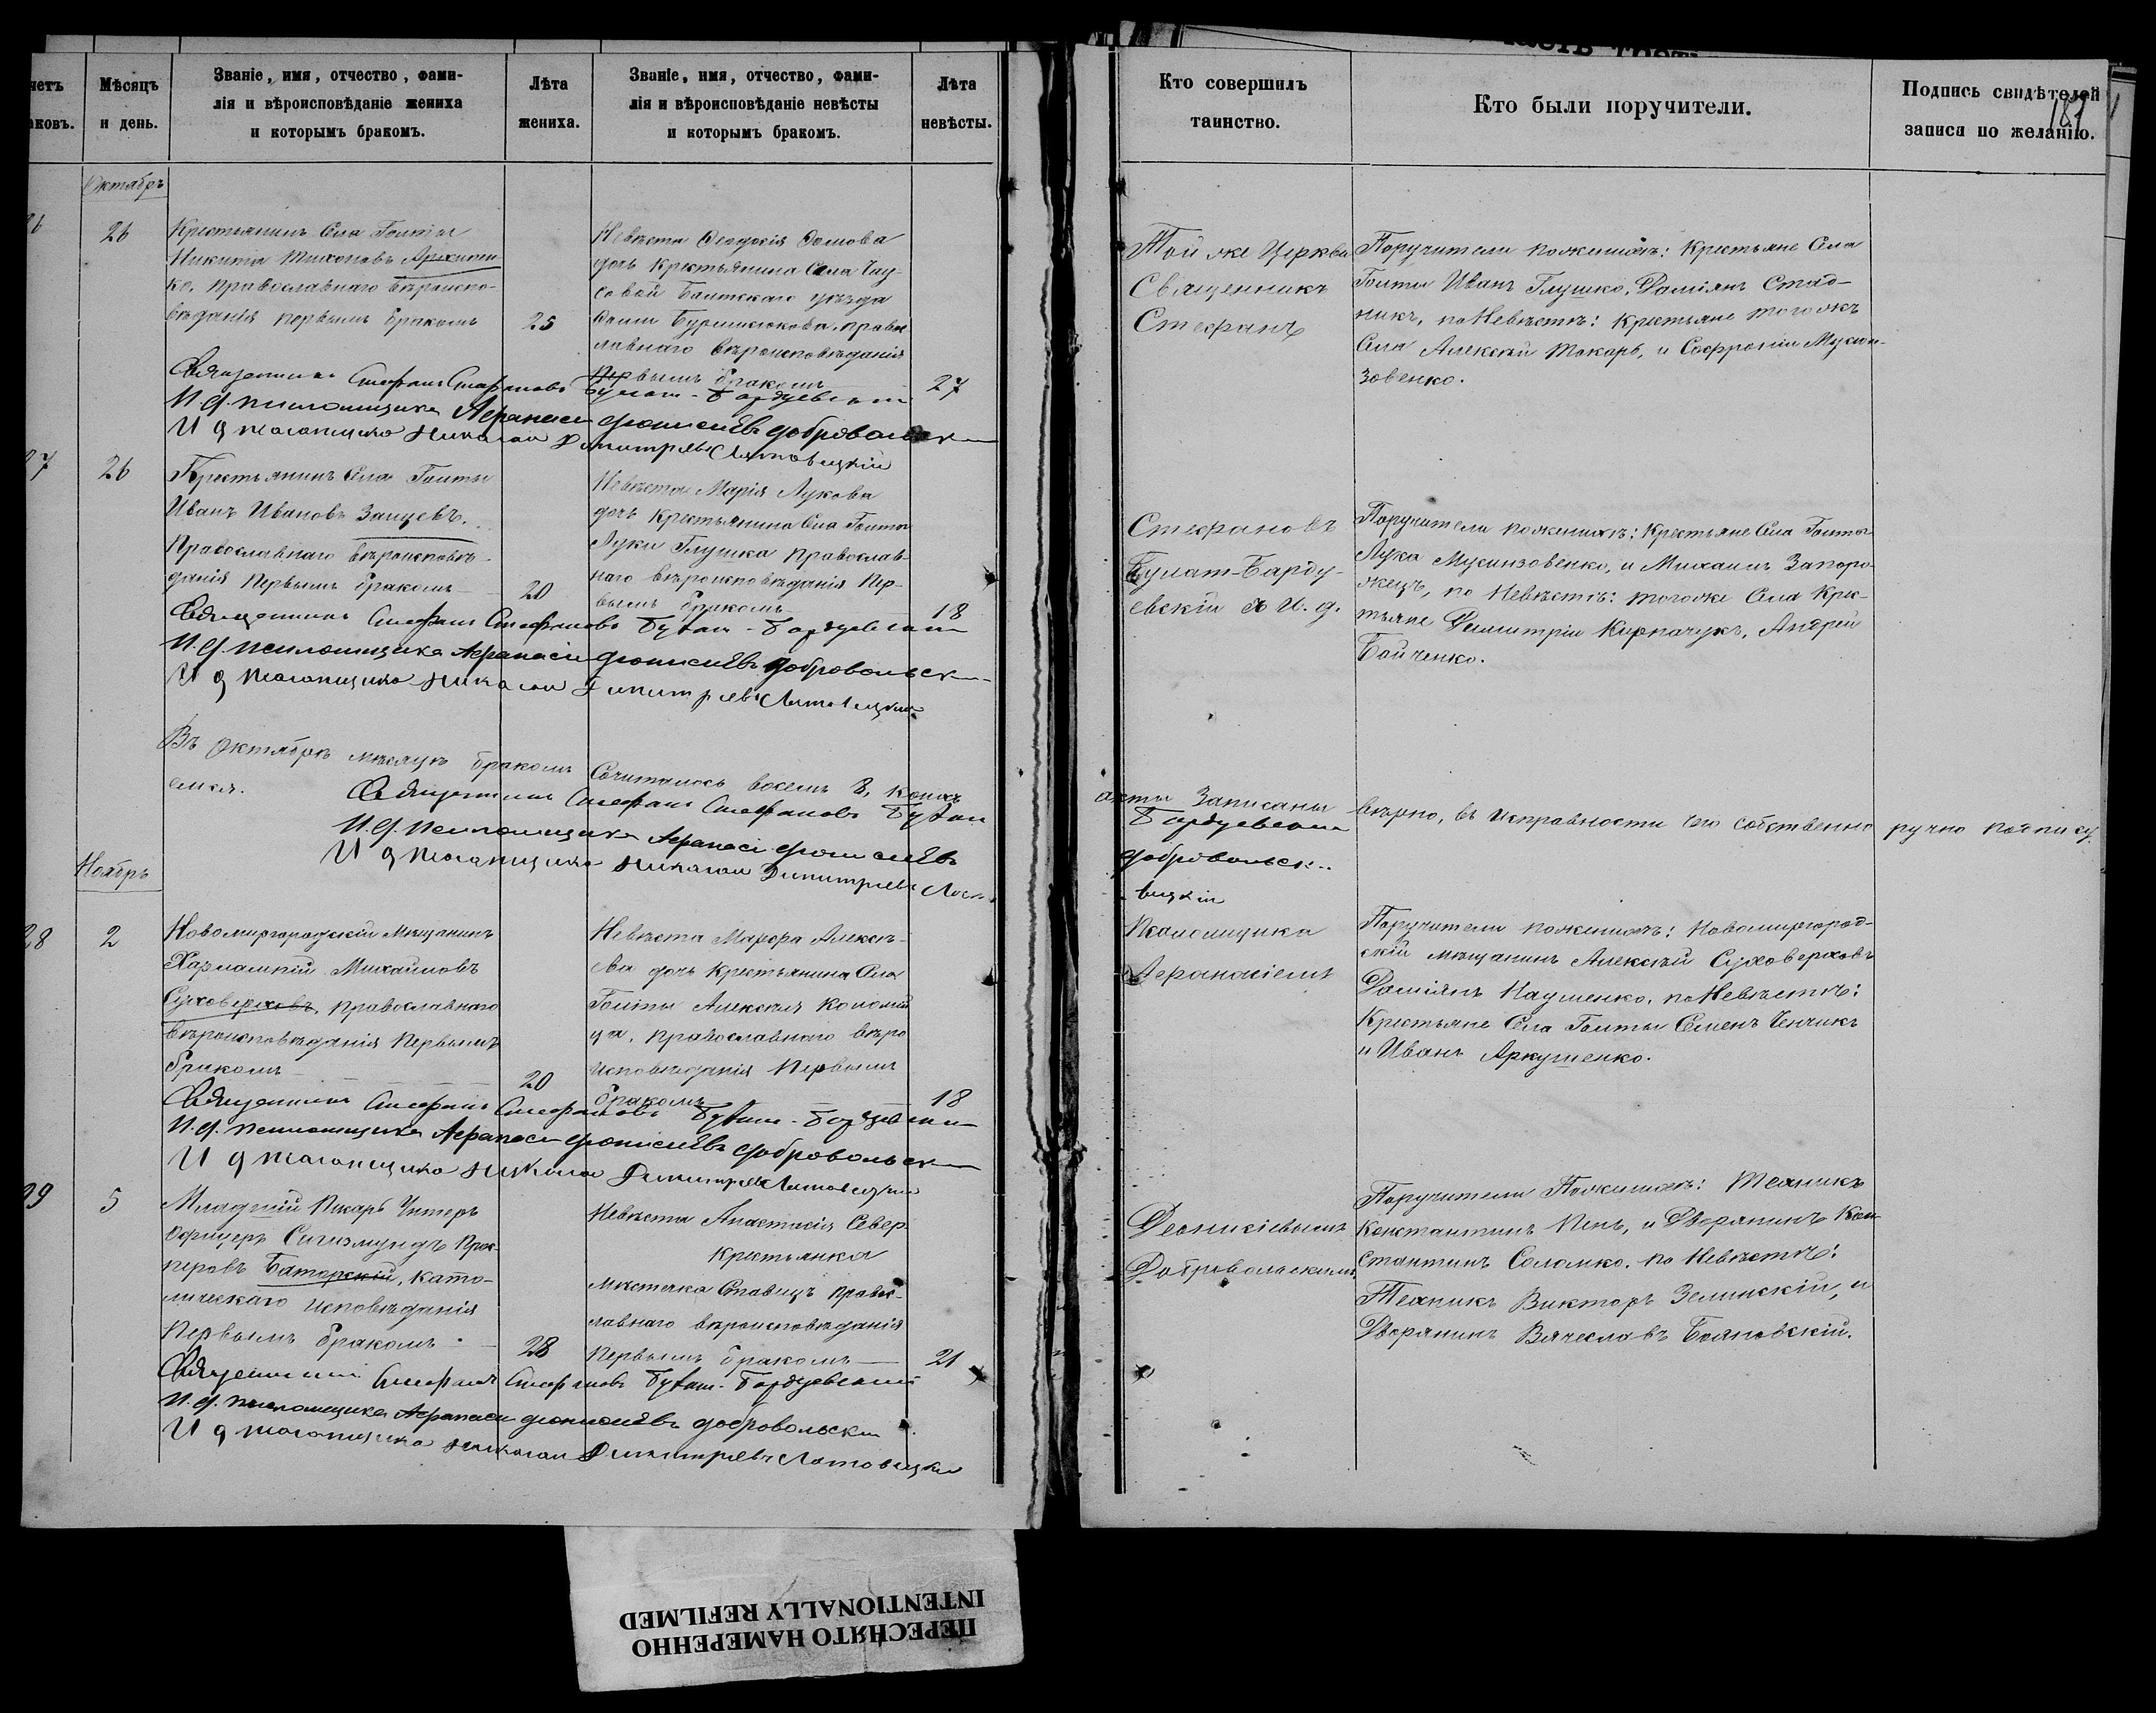 четъ
аковъ.
Мѣсяцъ
и день.
Званіе, имя, отчество, фами-
лія и вѣроисповѣданіе жениха
и которымъ бракомъ.
Лѣта
жениха.
Званіе, имя, отчество, фами-
лія и вѣроисповѣданіе невѣсты
и которымъ бракомъ.
Лѣта
невѣсты.
Октябрь
26
Крестьянинъ Села Голты
Никита Тихоновъ
ко, православнаго вѣроиспо-
вѣданія первымъ бракомъ
25
Невѣста Ѳеодосія
дочь Крестьянина Села Чау-
совой Балтскаго уѣзда
правос
лавнаго вѣроисповѣданія
Первымъ бракомъ
27
Священникъ Стефанъ Стефановъ Булат-Бардуевскій
И.д. псаломщика Афанасій Діонисіевъ Добровольскій
И д псаломщика Николай Димитріевъ
27
26
Крестьянинъ Села Голты
Иванъ Ивановъ Заицевъ.
Православнаго вѣроисповѣ-
данія Первымъ бракомъ
20
Невѣста Марія Лукова
дочь Крестьянина Села Голты
Луки Глушка Православ-
наго вѣроисповѣданія Пер-
вымъ бракомъ
18
Священникъ Стефанъ Стефановъ Булат-Бардуевскій
И.д. псаломщика Афанасій Діонисіевъ Добровольскій
И д псаломщика Николай Димитріевъ
Въ Октябрѣ мѣсяцѣ бракомъ Сочиталось восемь 8, коихъ
Священникъ Стефанъ Стефановъ Булат
И.д. псаломщика Афанасій Діонисіевъ
И д псаломщика Николай Димитріевъ
Ноябрь
28
2
Новомиргородскій Мѣщанинъ
Харлампій Михаиловъ
Суховерховъ, Православнаго
вѣроисповѣданія Первымъ
бракомъ
20
Невѣста Марѳа Алексѣ-
ева дочь Крестьянина Села
Голты Алексѣя Коломій
ца, православнаго вѣро
исповѣданія Первымъ
бракомъ
18
Священникъ Стефанъ Стефановъ Булат-Бардуевскій
И.д. псаломщика Афанасій Діонисіевъ Добровольскій
И д псаломщика Николай Димитріевъ
29
5
Младшій Писарь Унтеръ
Офицеръ Сигизмундъ
Баторскій, като-
лическаго исповѣданія
Первымъ бракомъ
28
Невѣста Анастасія Север
Крестьянка
мѣстечка Ставищъ правос-
лавнаго вѣроисповѣданія
Первымъ бракомъ
21
Священникъ Стефанъ Стефановъ Булат-Бардуевскій
И.д. псаломщика Афанасій Діонисіевъ Добровольскій
И д псаломщика Николай Димитріевъ
Кто совершилъ
таинство.
Кто были поручители.
Подпись свидѣтелей
записи по желанію.
Той же Церкви
Священникъ
Стефанъ
Поручители по женихѣ: Крестьяне Села
Голты Иванъ Глушко, Даміянъ Стад-
никъ, по Невѣстѣ: Крестьяне тогожъ
Села Алексѣй Токарь, и Софроній Мусiи-
зовенко.
Стефановъ
Булат-Барду-
евскій съ И. д.
Поручители по женихѣ: Крестьяне Села Голты
Лука Мусинзовенко, и Михаилъ Запоро-
жецъ, по Невѣстѣ: тогоже Села Кре-
стьяне Димитрій Кирпачукъ, Андрей
Бойченко.
акты Записаны вѣрно, въ исправности чего собственно ручно подпису.
Бардуевскій
Добровольск..
вицкій
Псаломщика
Афанасіемъ
Поручители по женихѣ: Новомиргород-
скій мѣщанинъ Алексѣй Суховерховъ
Даміянъ Науменко, по Невѣстѣ:
Крестьяне Села Голты Семенъ Ченчикъ
и Иванъ Аркушенко.
Деонисіевымъ
Добровольскимъ
Поручители По женихѣ: Техникъ
Константинъ Пень, и Дворянинъ Кон-
стантинъ Соломко. по Невѣстѣ:
Техникъ Викторъ Зелинскій, и
Дворянинъ Вячеславъ Бояновскій.
ПЕРЕСНЯТО НАМЕРЕННО
INTENTIONALLY REFILMED